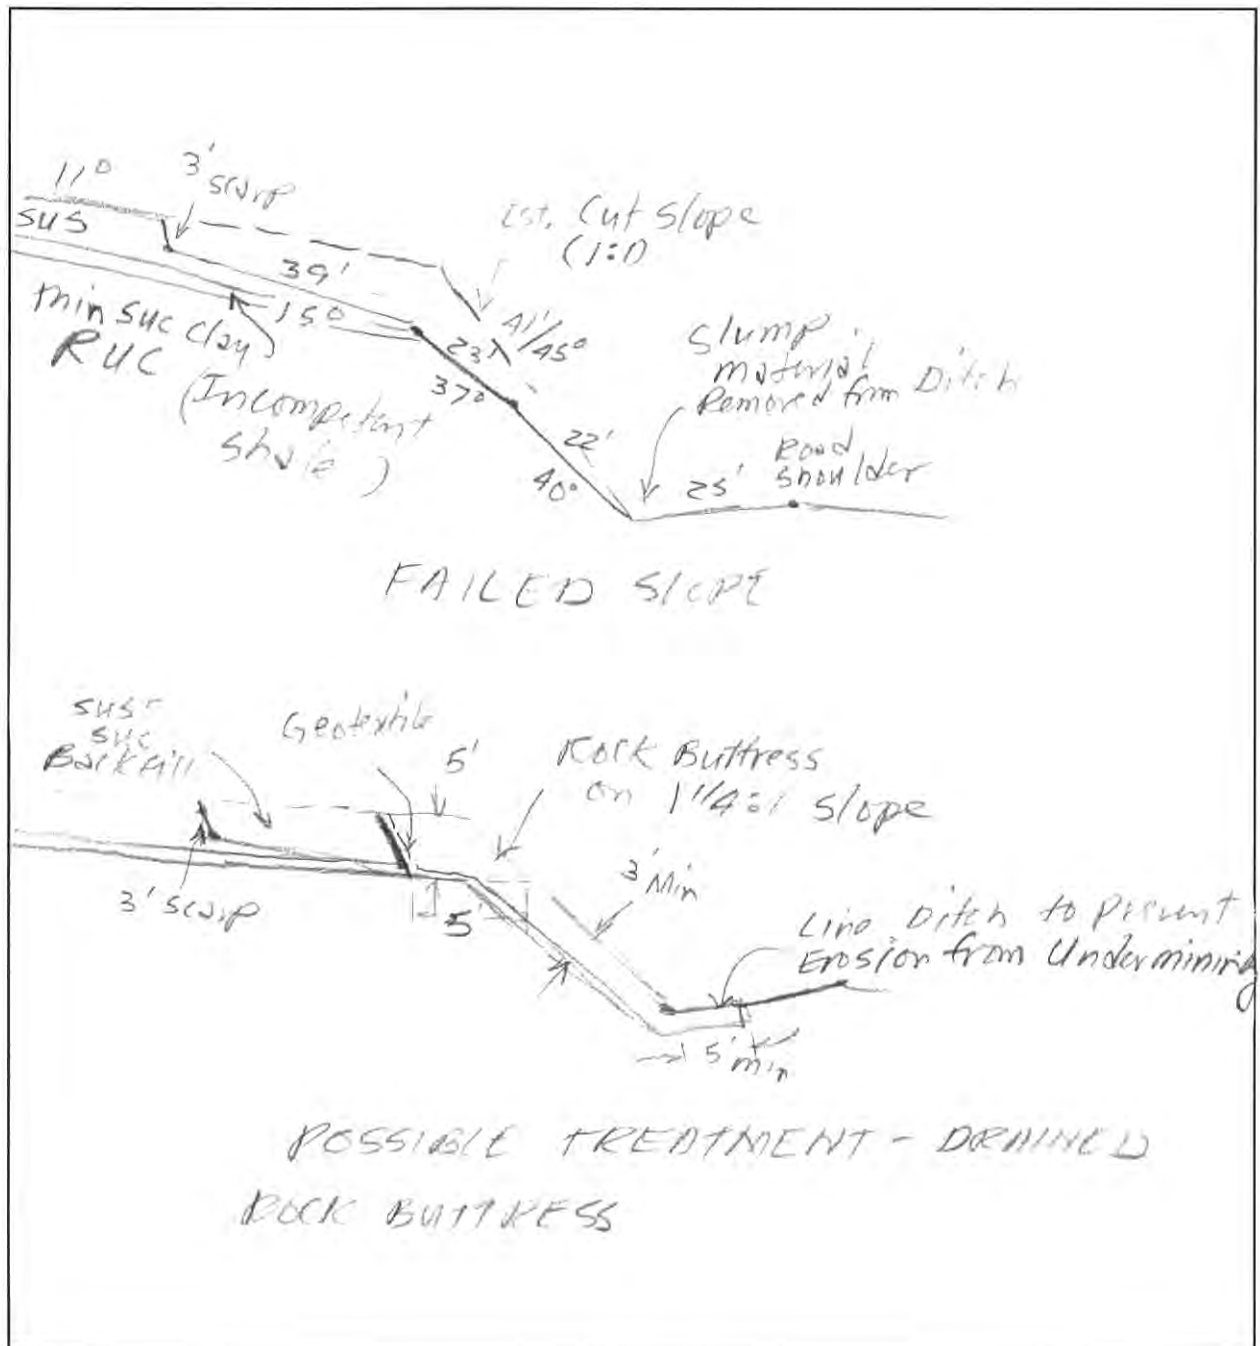 11°
3'
scarp
SUS
39'
15°
Est. Cut Slope
(1:1)
41'/45°
Thin SUC Clay
RUC
(Incompetent
Shale)
23'
37°
22'
40°
Slump
material
Removed from Ditch
25'
Road
Shoulder
FAILED SLOPE
SUS-
SUC
Backfill
Geotextile
5'
Rock Buttress
on 1 1/4:1 Slope
3' scarp
5'
3' Min
Line Ditch to Prevent
Erosion from Undermining
5' min
POSSIBLE TREATMENT - DRAINED
ROCK BUTTRESS